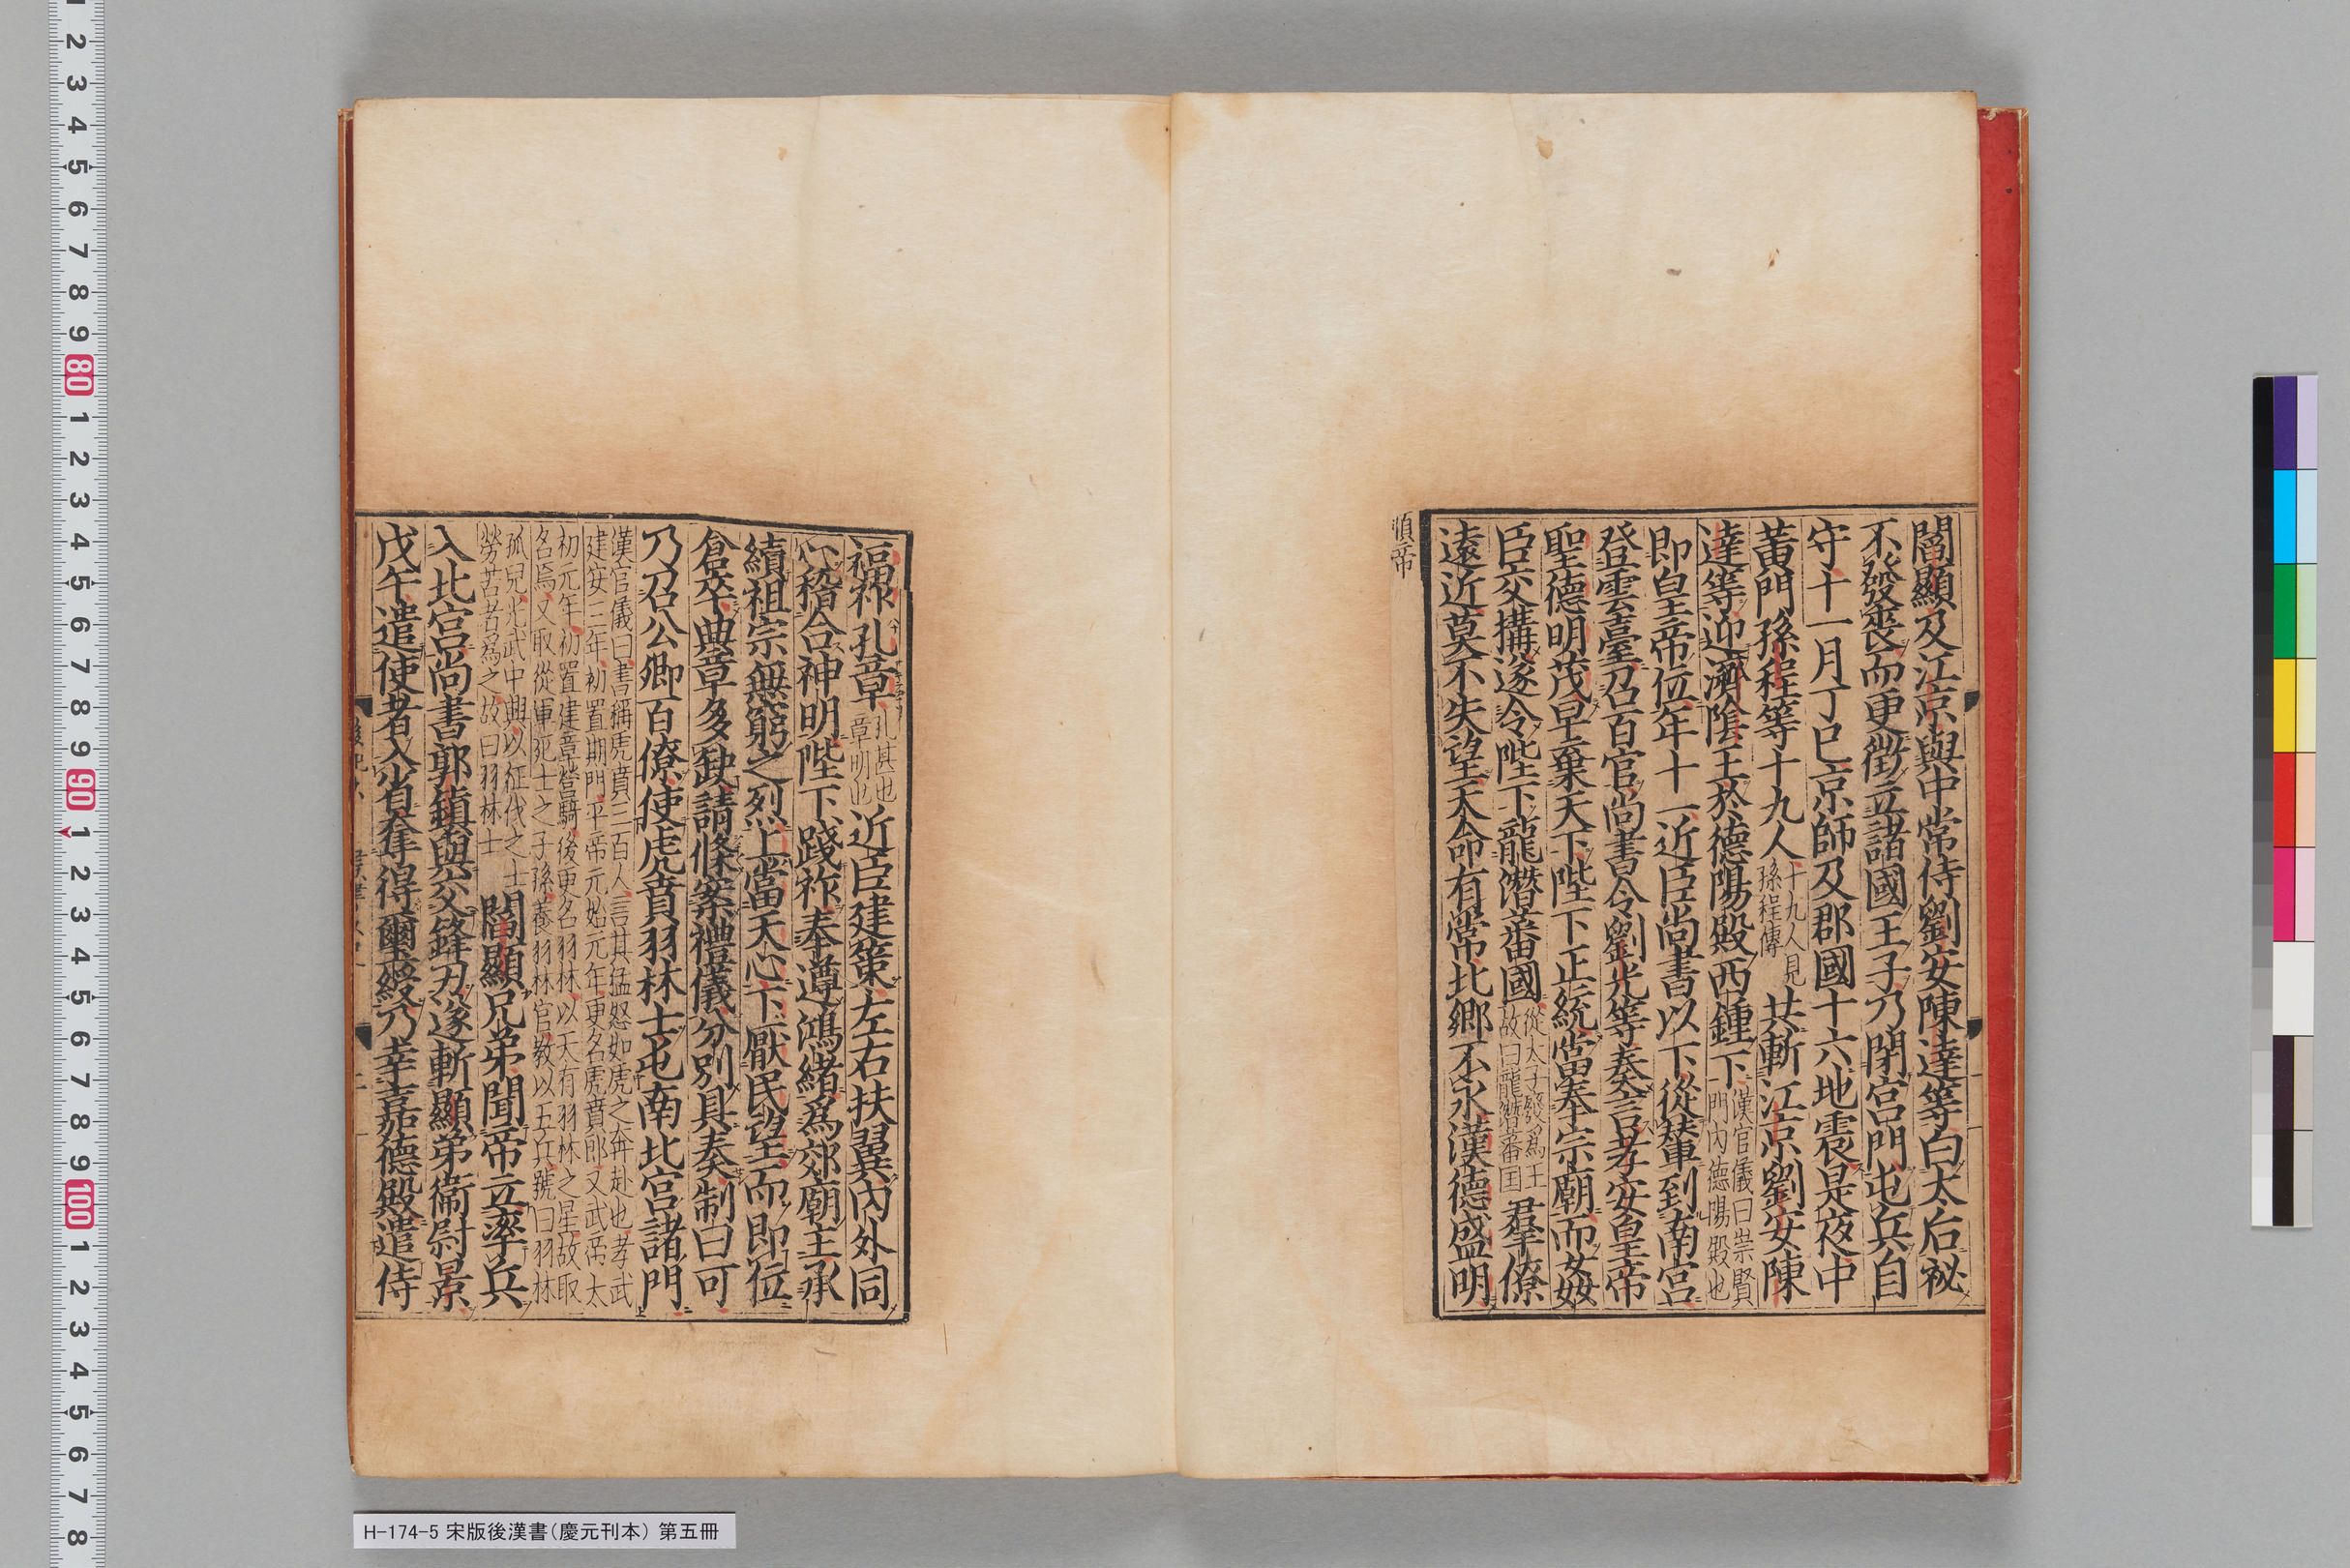 閻顯及江京與中常侍劉安陳達等白太后祕
不發喪而更徵立諸國王子乃閉宮門屯兵自
守十一月丁巳京師及郡國十六地震是夜中
黃門孫程等十九人十九人見孫程傳共斬江京劉安陳
達等迎濟陰王於德陽殿西鍾下漢官儀曰崇賢門內德陽殿也
即皇帝位年十一近臣尚書以下從輦到南宮
登雲臺召百官尚書令劉光等奏言孝安皇帝
聖德明茂早棄天下陛下正統當奉宗廟而姦
臣交搆遂令陛下龍潛蕃國從太子廢爲王故曰龍潛蕃國羣僚
遠近莫不失望天命有常北鄉不永漢德盛明
順帝
福祚孔章孔甚也章明也近臣建策左右扶翼內外同
心稽合神明陛下踐祚奉遵鴻緒爲郊廟主承
續祖宗無窮之烈上當天心下厭民望而即位
倉卒典章多缺請條案禮儀分別具奏制曰可
乃召公卿百僚使虎賁羽林士屯南北宮諸門
漢官儀曰書稱虎賁三百人言其猛怒如虎之奔赴也孝武
建安三年初置期門平帝元始元年更名虎賁郎又武帝太
初元年初置建章營騎後更名羽林以天有羽林之星故取
名焉又取從軍死士之子孫養羽林官敎以五兵號曰羽林
孤兒光武中興以征伐之士
勞苦者爲之故曰羽林士
閻顯兄弟聞帝立率兵
入北宮尚書郭鎮與交鋒刃遂斬顯弟衞尉景
戊午遣使者入省奪得璽綬乃幸嘉德殿遣侍
H-174-5 宋版後漢書（慶元刊本） 第五冊